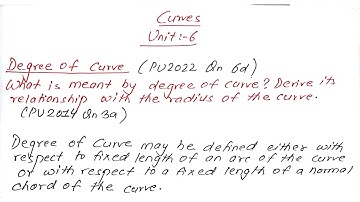 Curves
Unit:-6
Degree of curve (PU2022 Qn 6d)
What is meant by degree of curve? Derive its
relationship with the radius of the curve.
(PU2014 Qn 3a)
Degree of Curve may be defined either with
respect to fixed length of an arc of the curve
or with respect to a fixed length of a normal
chord of the curve.